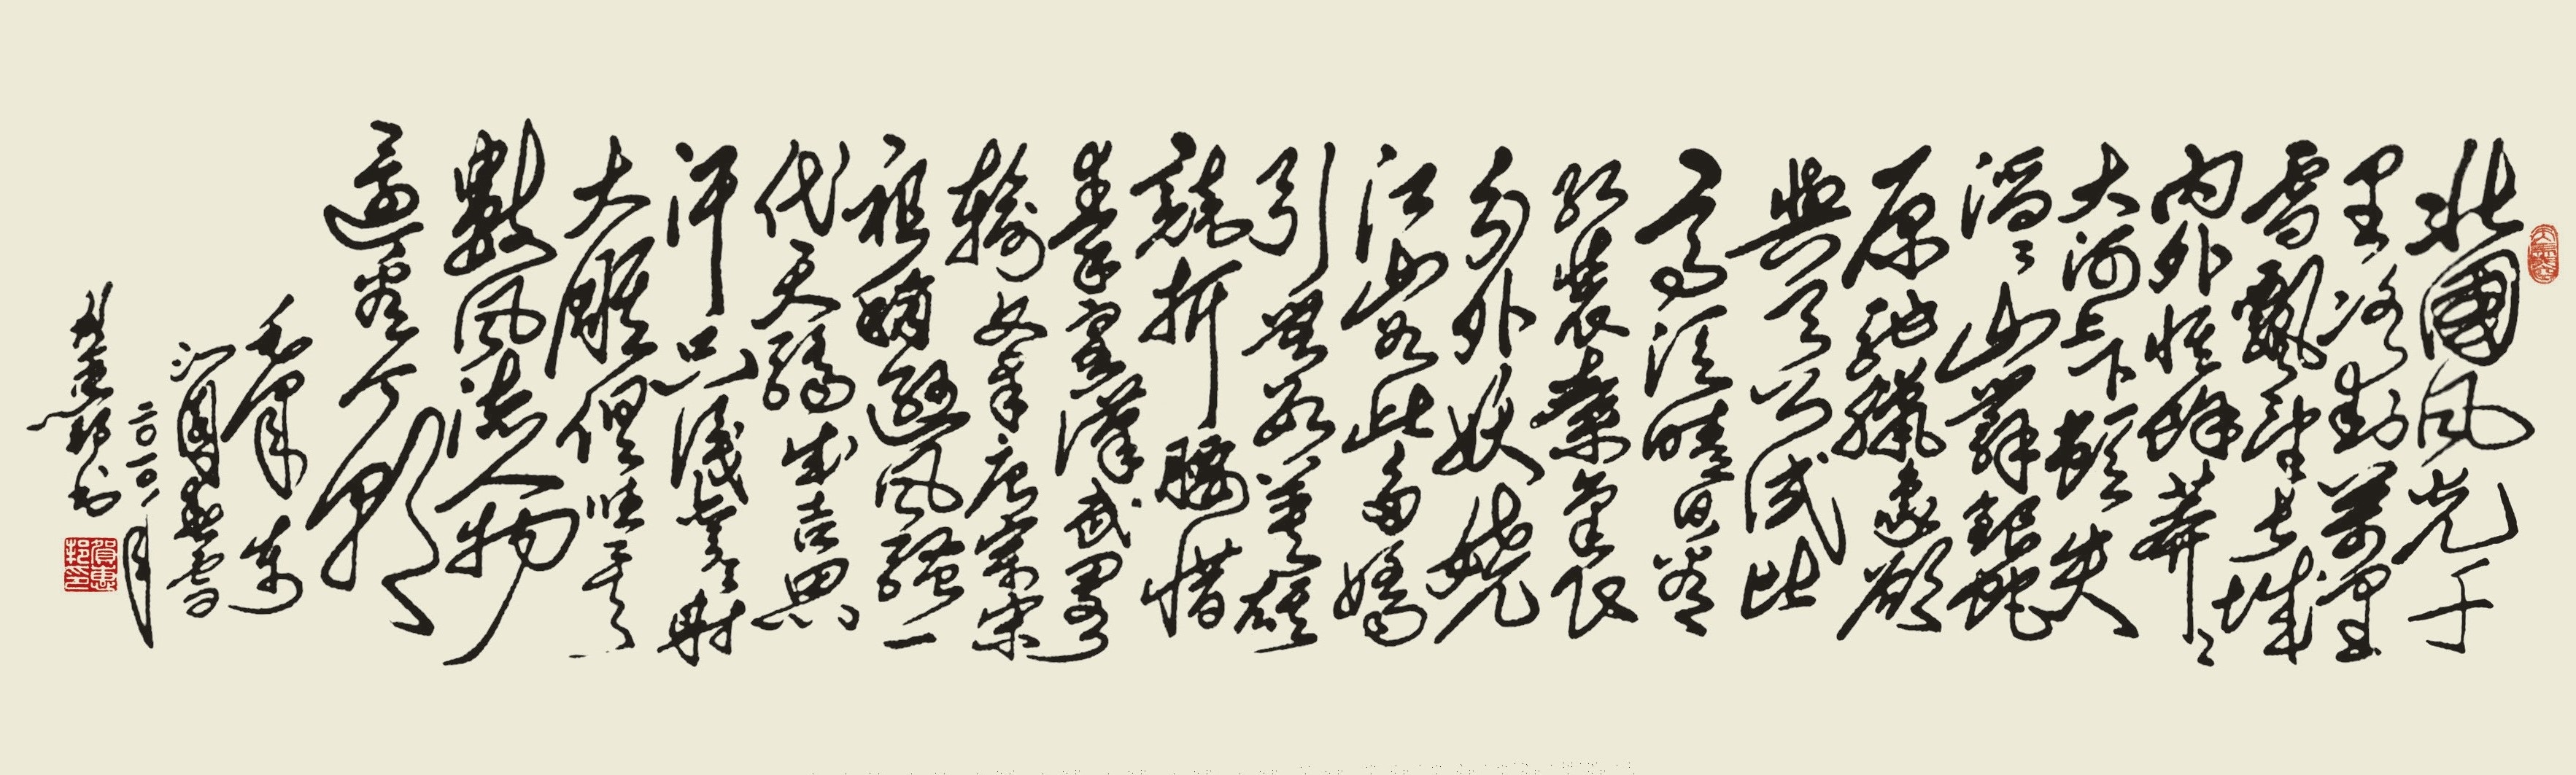 北國風光千
里冰封萬里
雪飄望長城
內外惟餘莽〻
大河上下頓失
滔〻山舞銀蛇
原馳臘象欲
與天公試比
高須晴日看
紅裝素裹
分外妖嬈
江山如此多嬌
引無數英雄
競折腰惜
秦皇漢武略
輸文采唐宗宋
祖稍遜風騷一
代天驕成吉思
汗只識彎弓射
大雕俱往矣
數風流人物
還看今朝
毛澤東
沁園春雪
二〇一〇月
賀惠邦書
賀惠邦印